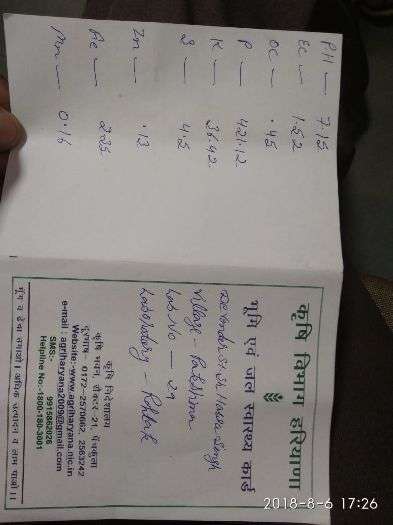 PH — 7.15
EC — 1.52
OC — .45
P — 421.12
K — 36.42
S — 4.5
Zn — .13
Fe — 2.25
Mn — 0.16
कृषि विभाग हरियाणा
भूमि एवं जल स्वास्थ्य कार्ड
Singh
Village -
Lab No — 29
Laboratory - Rohtak
कृषि निदेशालय
कृषि भवन सैक्टर 21, पंचकुला
दूरभाष - 0172-2570662, 2563242
Website:-www.agriharyana.nic.in
e-mail: agriharyana2009@gmail.com
SMS:-
9915862026
Helpline No.-1800-180-3001
2018-8-6 17:26